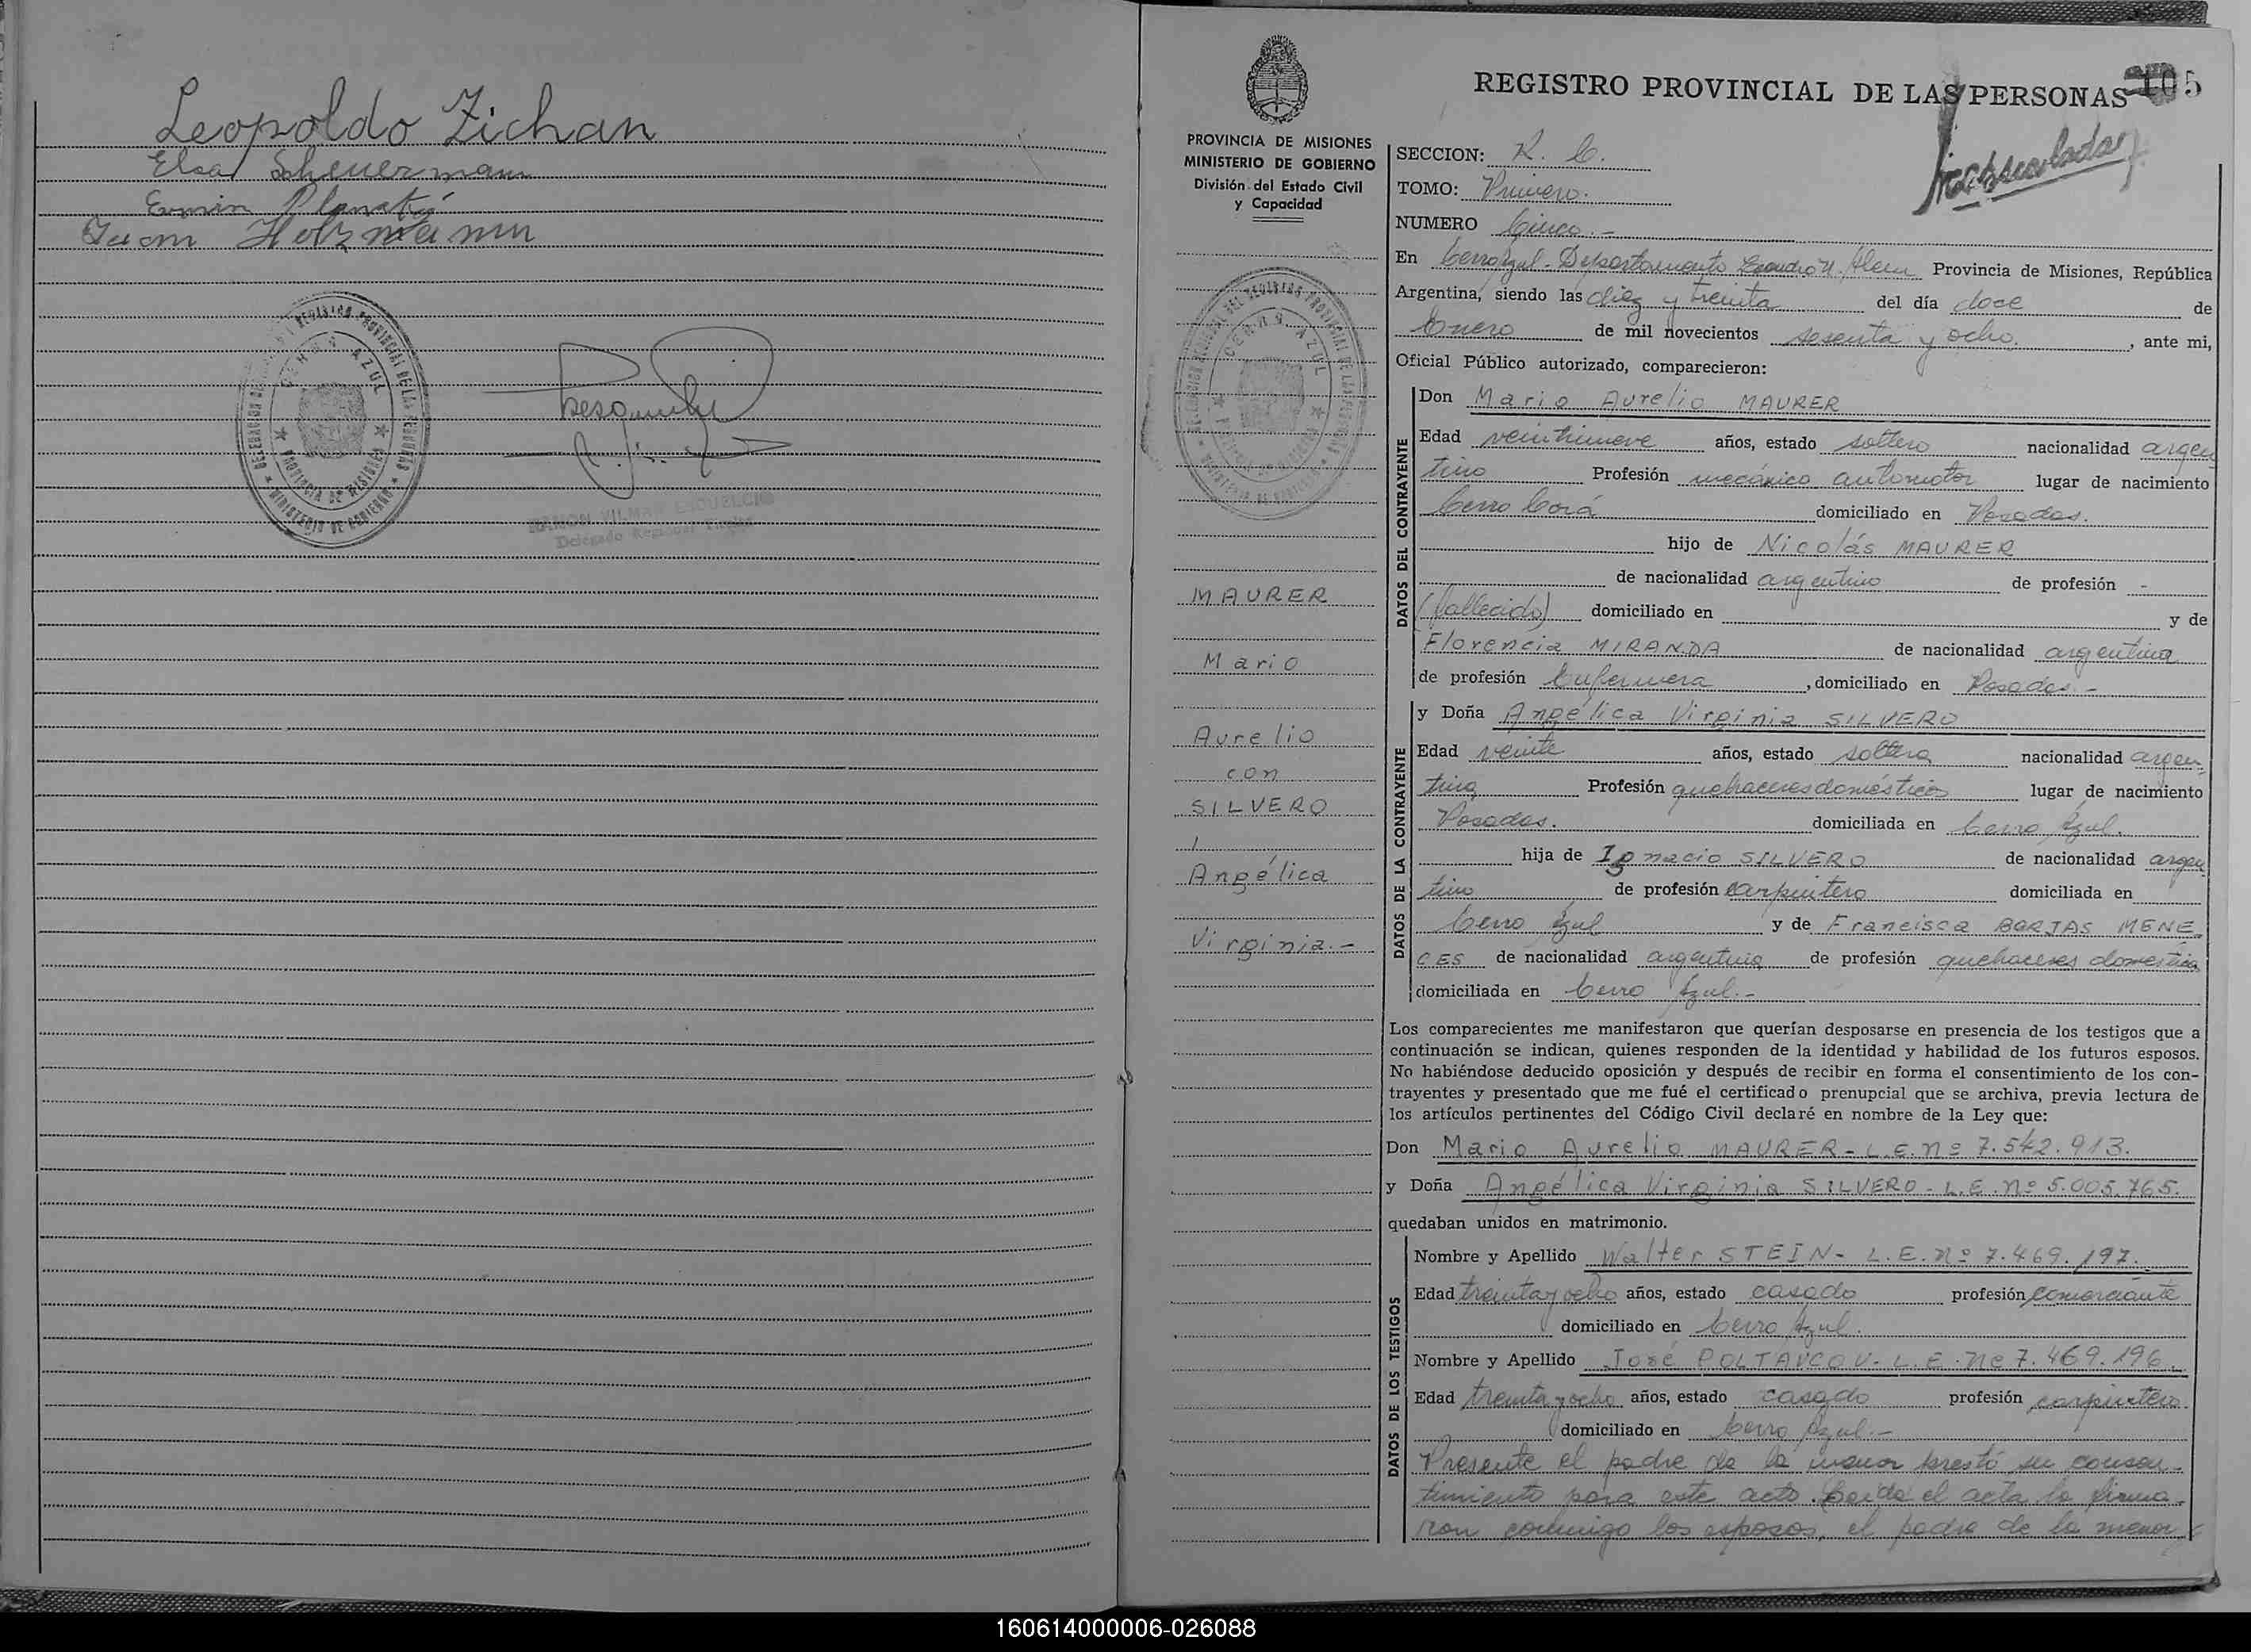 Leopoldo Zichan
Elsa Scheuermann
Juan Holzmann
CERRO AZUL
PROVINCIA DE MISIONES
MINISTERIO DE GOBIERNO
RAMON VILMAR
Delegado Regional Titular
REGISTRO PROVINCIAL DE LAS PERSONAS
105
PROVINCIA DE MISIONES
MINISTERIO DE GOBIERNO
División del Estado Civil
y Capacidad
SECCION: R. C.
TOMO: Primero.
NUMERO Cinco.-
En Cerro Azul - Departamento Leandro N. Alem Provincia de Misiones, República
Argentina, siendo las diez y treinta del día doce de
Enero de mil novecientos sesenta y ocho. , ante mi,
Oficial Público autorizado, comparecieron:
DATOS DEL CONTRAYENTE
Don Mario Aurelio MAURER
Edad veintinueve años, estado soltero nacionalidad argen
tino Profesión mecánico automotor lugar de nacimiento
Cerro Corá domiciliado en Posadas.
hijo de Nicolás MAURER
de nacionalidad argentino de profesión -
(fallecido) domiciliado en y de
Florencia MIRANDA de nacionalidad argentina
de profesión Enfermera , domiciliado en Posadas.-
DATOS DE LA CONTRAYENTE
y Doña Angélica Virginia SILVERO
Edad veinte años, estado soltera nacionalidad argen
tina Profesión quehaceres domésticos lugar de nacimiento
Posadas. domiciliada en Cerro Azul.
hija de Ignacio SILVERO de nacionalidad argen
tino de profesión carpintero domiciliada en
Cerro Azul y de Francisca BORJAS MENE
CES de nacionalidad argentina de profesión quehaceres domésticos
domiciliada en Cerro Azul.-
MAURER
Mario
Aurelio
con
SILVERO
Angélica
Virginia.-
Los comparecientes me manifestaron que querían desposarse en presencia de los testigos que a
continuación se indican, quienes responden de la identidad y habilidad de los futuros esposos.
No habiéndose deducido oposición y después de recibir en forma el consentimiento de los con-
trayentes y presentado que me fué el certificado prenupcial que se archiva, previa lectura de
los artículos pertinentes del Código Civil declaré en nombre de la Ley que:
Don Mario Aurelio MAURER - L.E. nº 7.542.913.
y Doña Angélica Virginia SILVERO - L.E. nº 5.005.765.
quedaban unidos en matrimonio.
DATOS DE LOS TESTIGOS
Nombre y Apellido Walter STEIN - L.E. nº 7.469.197.
Edad treinta y ocho años, estado casado profesión comerciante
domiciliado en Cerro Azul.
Nombre y Apellido José POLTAVCOV - L.E. nº 7.469.196.
Edad treinta y ocho años, estado casado profesión carpintero
domiciliado en Cerro Azul.-
Presente el padre de la menor prestó su consen-
timiento para este acto. Leida el acta la firma-
ron conmigo los esposos, el padre de la menor
160614000006-026088